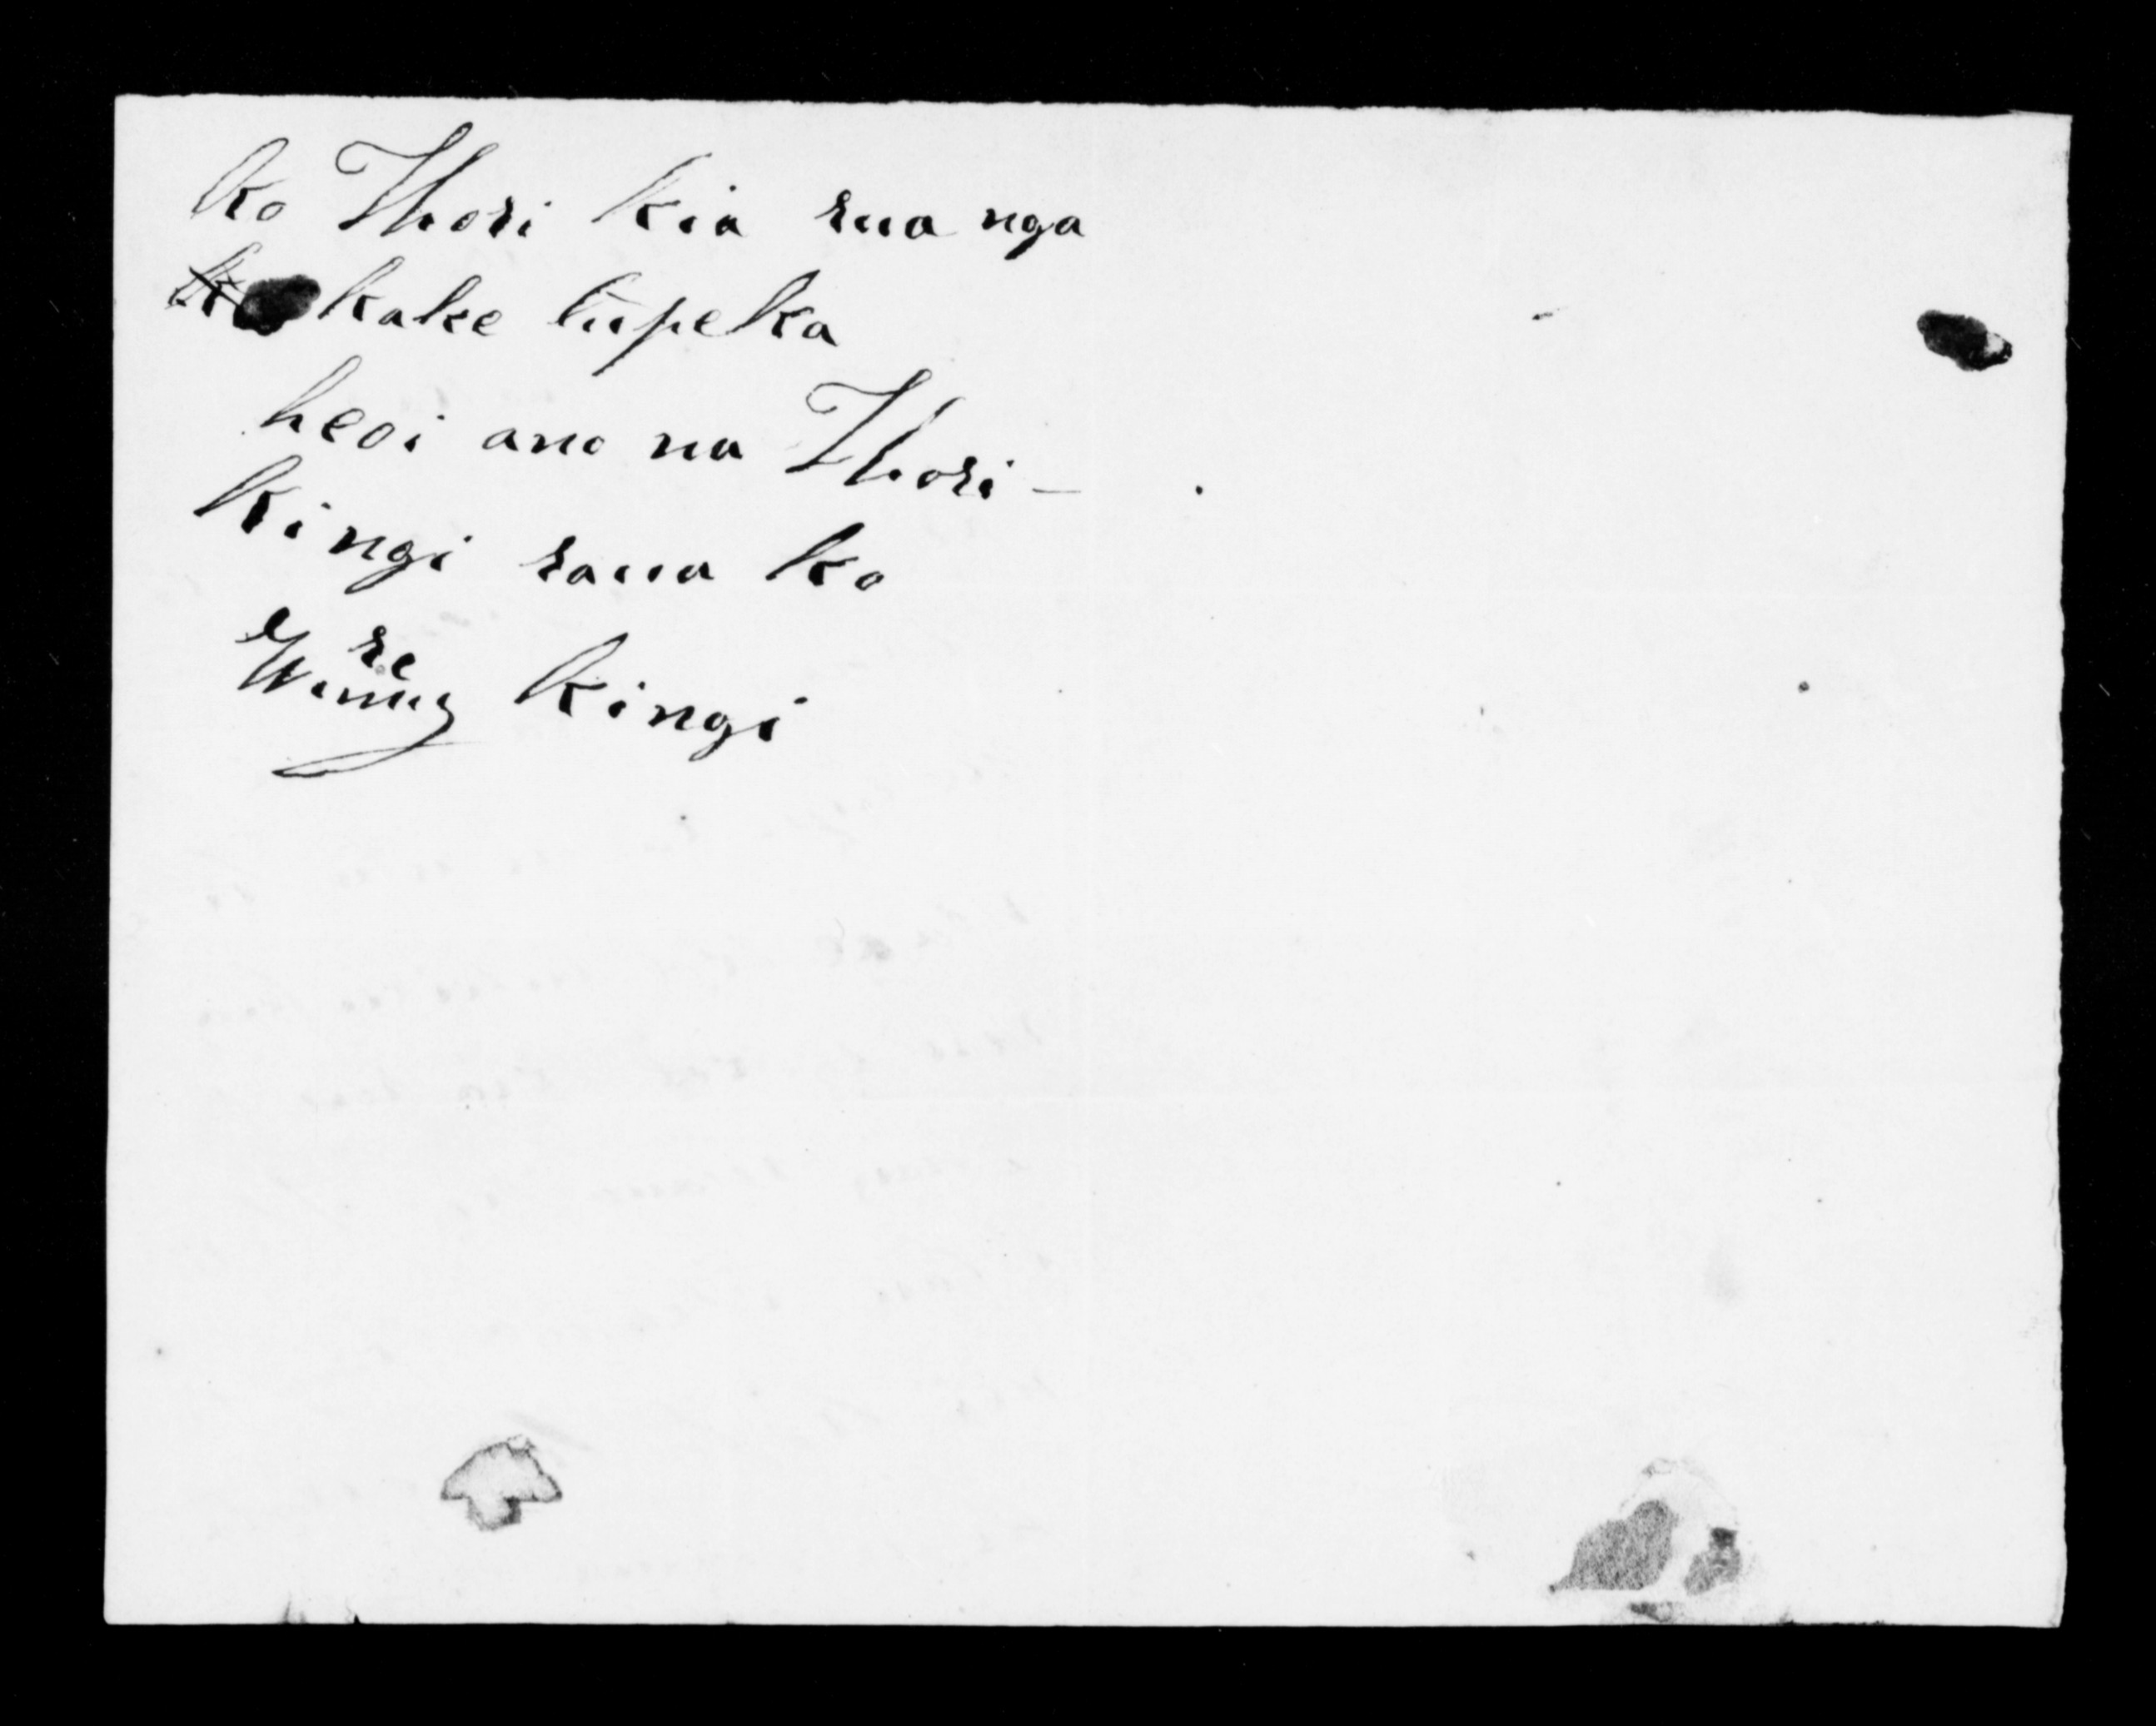 Ko Ihori kia rua nga
kake tupeka
heoi ano na Ihori -
Kingi raua ko
Wiremu Kingi